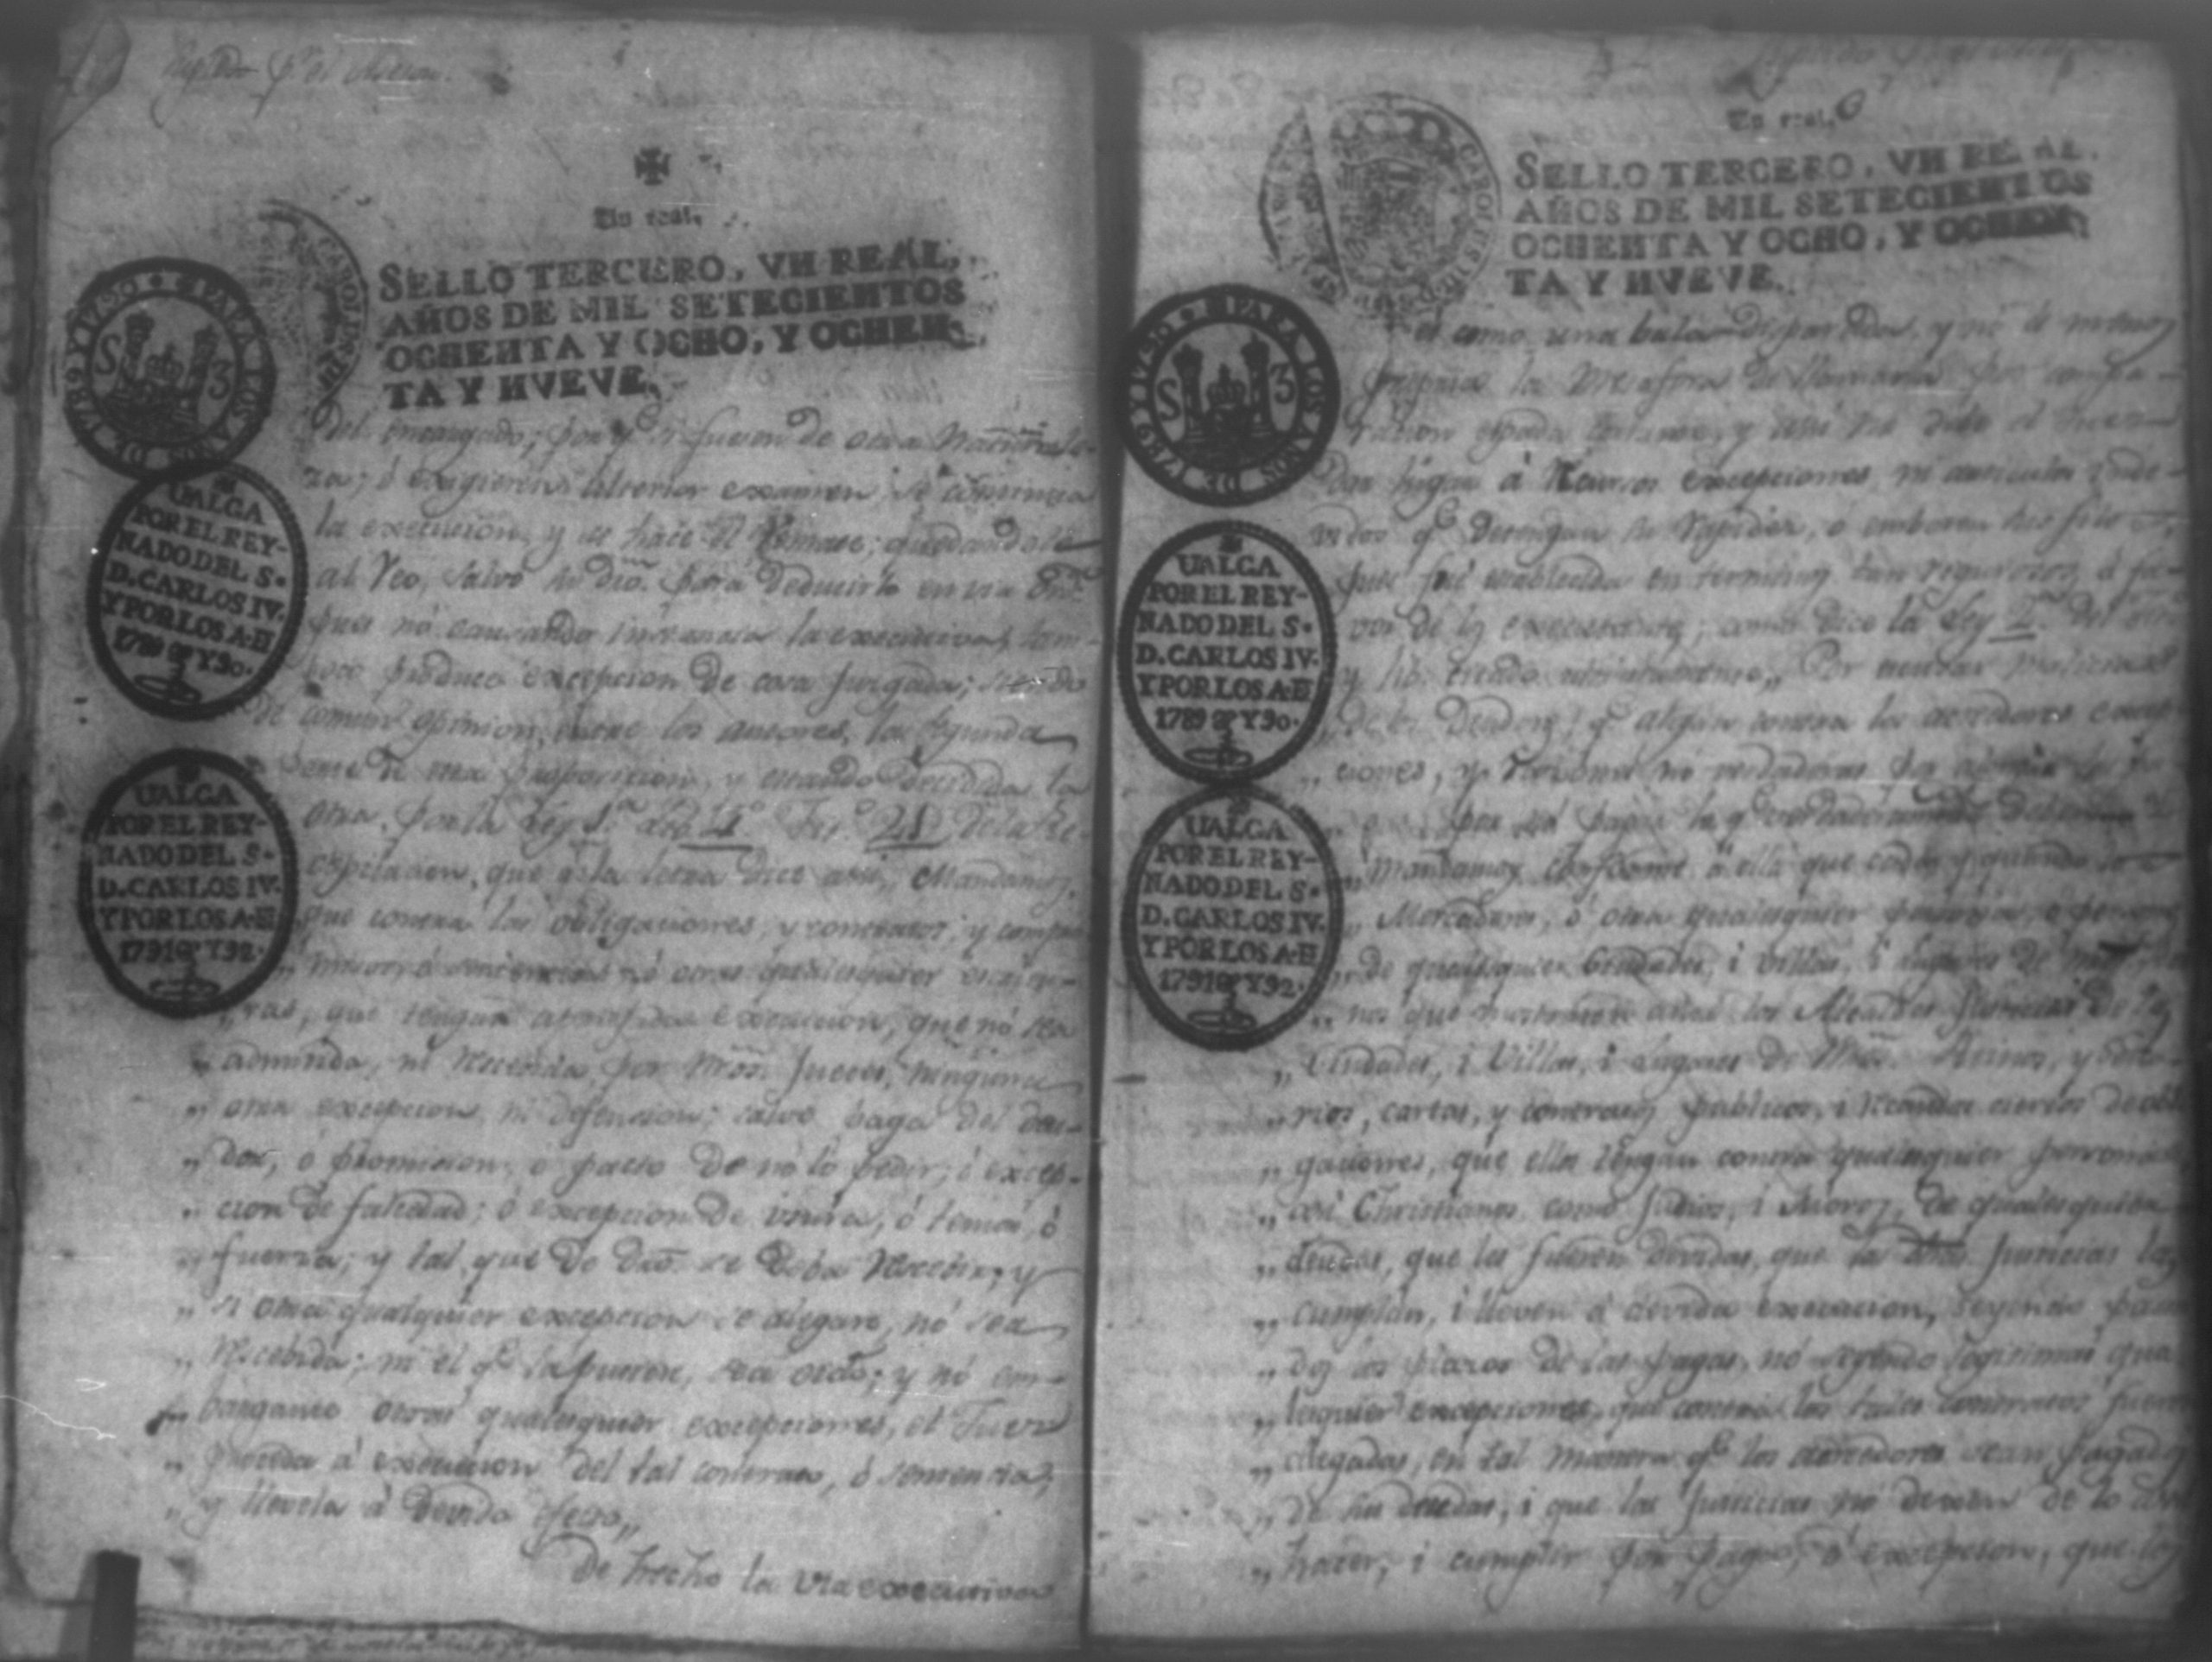 Un real.
SELLO TERCERO, VN REAL,
AÑOS DE MIL SETECIENTOS
OCHENTA Y OCHO, Y OCHEN-
TA Y NVEVE.
PARA LOS AÑOS DE 1789 Y 1790
S 3
VALGA
POR EL REY-
NADO DEL S.
D. CARLOS IV.
Y POR LOS A. D
1789 Y 90.
VALGA
POR EL REY-
NADO DEL S.
D. CARLOS IV.
Y POR LOS A. D
1791 Y 92.
del encargado; porq.e si fueren de otra naturale-
za; ó exigieren ulterior examen, se continua
la execucion, y se hace el Remate; quedandole
al Reo, salvo su dro. para deducirlo en via
pues no causando instancia la executiva, tam-
poco produce excepcion de cosa juzgada; siendo
de comun opinion, entre los autores, la segunda
parte de esta proposicion, y estando decidida la
otra, por la Ley 1.a del 4.o 21 de la Re-
copilacion, que a la letra dice asi, Mandamos,
que contra las obligaciones, y contratos, y compro-
misos, ó sentencias, ó otras qualesquier escriptu-
ras, que tengan aparejada execucion, que no sea
„ admitida, ni Recebida, por nros. Jueces, ninguna
„ otra excepcion, ni defension; salvo paga del deu-
„ dor, ó promision, o pacto de no lo pedir, ó excep-
„ cion de falsedad; ó excepcion de usura, ó temor, ó
„ fuerza; y tal, que de dro. se deba Recebir, y
„ si otra qualquier excepcion se alegare, no sea
„ Recebida; ni el q.e la pusiere, sea oido; y no em-
„ bargante otras qualesquier excepciones, el Juez
„ proceda á execucion del tal contrato, ó sentencia,
„ y llevela á devido efecto„
De hecho la via executiva
Un real.
SELLO TERCERO, VN REAL,
AÑOS DE MIL SETECIENTOS
OCHENTA Y OCHO, Y OCHEN-
TA Y NVEVE.
PARA LOS AÑOS DE 1789 Y 1790
S 3
VALGA
POR EL REY-
NADO DEL S.
D. CARLOS IV.
Y POR LOS A. D
1789 Y 90.
VALGA
POR EL REY-
NADO DEL S.
D. CARLOS IV.
Y POR LOS A. D
1791 Y 92.
es como una bala disparada, y no de menos
propia la metafora de llamarla por compa-
racion espada y asi no debe
dar lugar á Recursos excepciones, ni articulos
q.e detengan su rapidez, o emboten sus filos
pues fué establecida en terminos tan rigurosos á fa-
vor de los executantes; como dice la Ley 2.a del
y tio. citado „ Por evitar malicias
„ de los deudores, q.e alegan contra los acreedores excep-
„ ciones, y Razones no verdaderas por
„ Mandamos conforme á ella que cada y quando
„ Mercaderes, ó otra qualesquier persona, o personas
„ de qualesquier Ciudades, i Villas, i Lugares de
„ nos que mostraren ante los Alcaldes Justicias de las
„ Ciudades, i Villas, i Lugares de Reinos, y
„ rios, cartas, y contratos publicos, i Recaudos ciertos de obli-
„ gaciones, que ellos tengan contra qualesquier personas
„ asi Christianos, como Judios, i Moros, de qualesquier
„ deudas, que les fueren devidas, que las dhas. Justicias las
„ cumplan, i lleven á devida execucion, seyendo pasa-
„ dos los plazos de las pagas, no seyendo legitimas qua-
„ lesquier excepciones, que contra los tales contratos fueren
„ alegadas, en tal manera q.e los acreedores sean pagados
„ de sus deudas, i que las Justicias no dexen de lo asi
„ hacer, i cumplir por paga, ó excepcion, que los